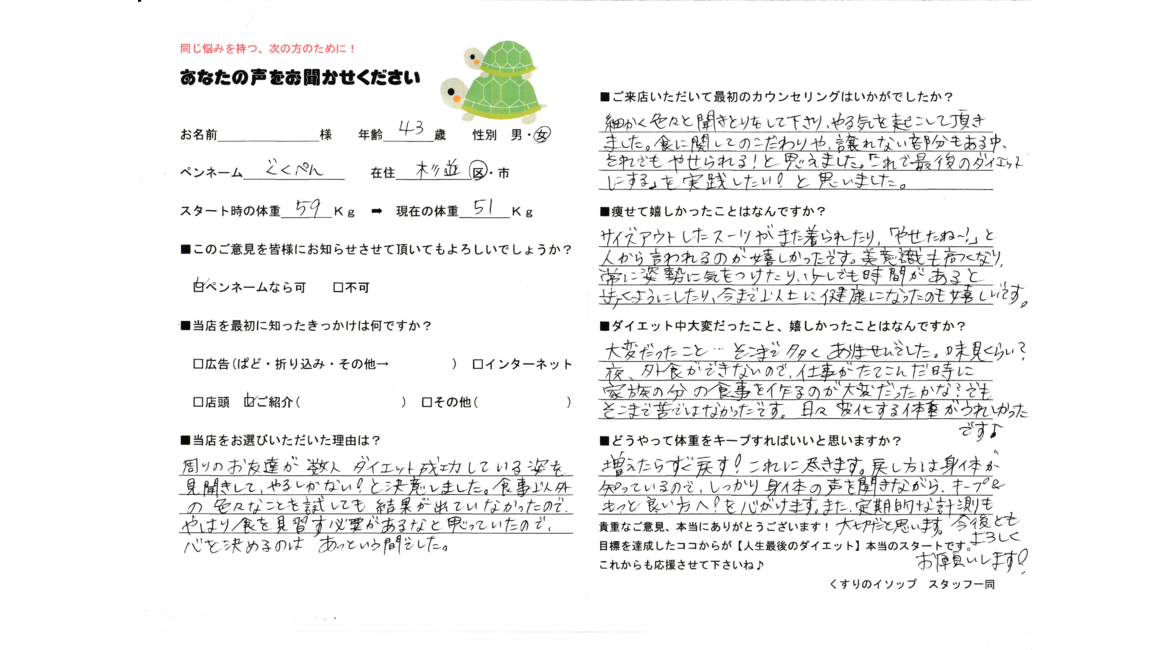 同じ悩みを持つ、次の方のために！
あなたの声をお聞かせください
お名前 様 年齢 43 歳 性別 男・女
ペンネーム ぐくぺん 在住 杉並 区・市
スタート時の体重 59 Kg ➡ 現在の体重 51 Kg
■このご意見を皆様にお知らせさせて頂いてもよろしいでしょうか？
☑ペンネームなら可 □不可
■当店を最初に知ったきっかけは何ですか？
□広告(ぱど・折り込み・その他→ ) □インターネット
□店頭 ☑ご紹介( ) □その他( )
■当店をお選びいただいた理由は？
周りのお友達が数人ダイエット成功している姿を
見聞きして、やるしかない！と決意しました。食事以外
の色々なことを試しても結果が出ていなかったので、
やはり食を見習す必要があるなと思っていたので、
心を決めるのは あっという間でした。
■ご来店いただいて最初のカウンセリングはいかがでしたか？
細かく色々と聞きとりをして下さり、やる気を起こして頂き
ました。食に関してのこだわりや、譲れない部分もある中、
それでもやせられる！と思えました。「これで最後のダイエット
にする」を実践したい！と思いました。
■痩せて嬉しかったことはなんですか？
サイズアウトしたスーツがまた着られたり、「やせたね〜！」と
人から言われるのが嬉しかったです。美意識も高くなり、
常に姿勢に気をつけたり、少しでも時間があると
歩くようにしたり、今まで以上に健康になったのも嬉しいです。
■ダイエット中大変だったこと、嬉しかったことはなんですか？
大変だったこと…そこまで多くありませんでした。味見くらい？
夜、外食ができないので、仕事がたてこんだ時に
家族の分の食事を作るのが大変だったかな？でも
そこまで苦ではなかったです。日々変化する体重がうれしかった
です♪
■どうやって体重をキープすればいいと思いますか？
増えたらすぐ戻す！これに尽きます。戻し方は身体が
知っているので、しっかり身体の声を聞きながら、キープ&
もっと良い方へ！を心がけます。また、定期的な計測も
大切だと思います。今後とも
よろしく
お願いします！
貴重なご意見、本当にありがとうございます！
目標を達成したココからが【人生最後のダイエット】本当のスタートです。
これからも応援させて下さいね♪
くすりのイソップ スタッフ一同